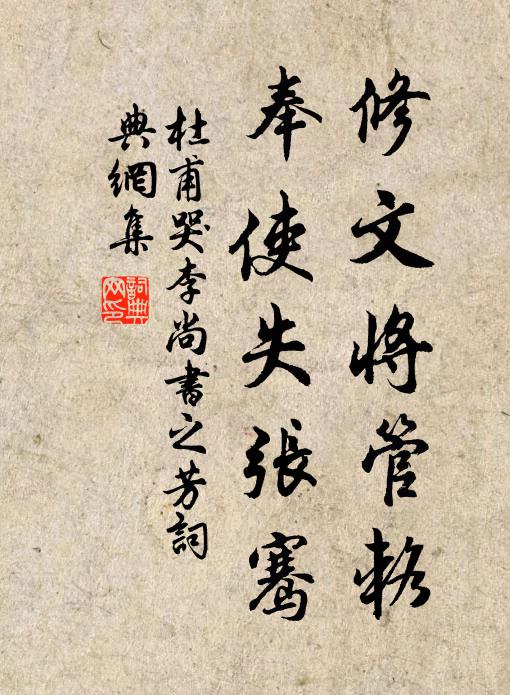 修文將管輅
奉使失張騫
杜甫哭李尚書之芳詞
典網集
詞典
网印